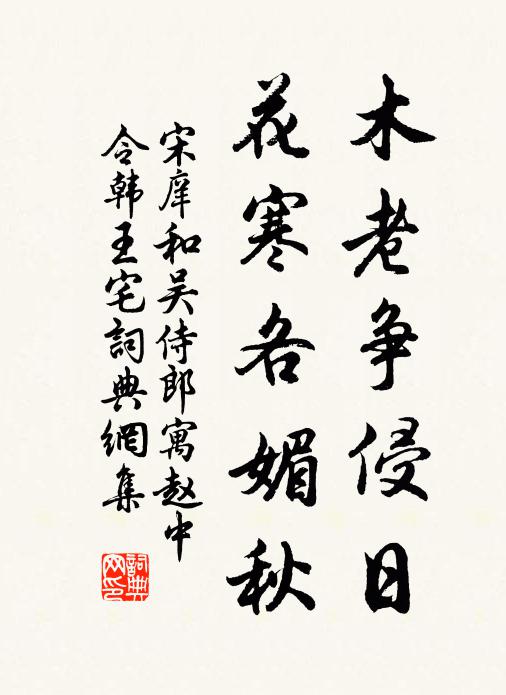 木老争侵日
花寒各媚秋
宋庠和吴侍郎寓赵中
令韩王宅詞典網集
詞典
网印